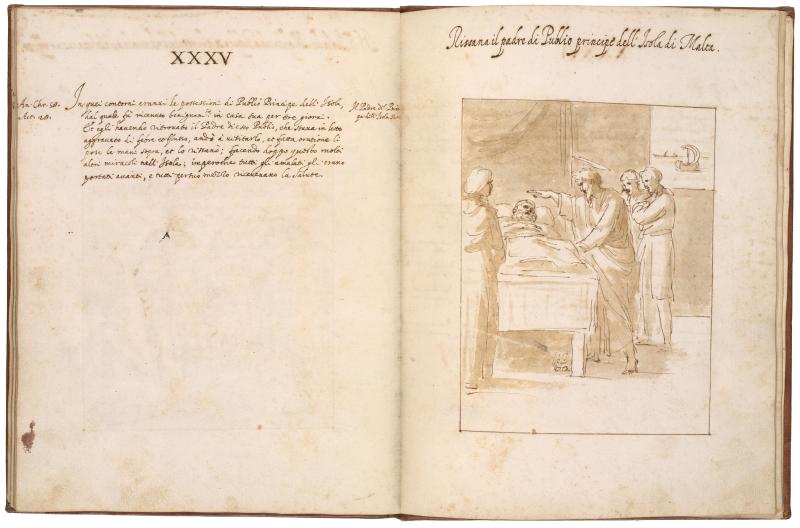 XXXV
An. Chr. 58.
Act. 28.
In quei contorni erano le possessioni di Publio Principe dell' Isola,
dal quale fù ricevuto benignam.te in casa sua per tre giorni.
Et egli havendo ritrovato il Padre di esso Publio, che stava in letto
aggravato di febre et flusso, andò à visitarlo, et fatta oratione li
pose le mani sopra, et lo risanò; facendo doppo questo molti
altri miracoli nell' Isola; imperoche tutti gli amalati gli erano
portati avanti, e tutti per suo mezzo ricevevano la salute.
Il Padre di
A
Risana il padre di Publio principe dell' Isola di Malta.